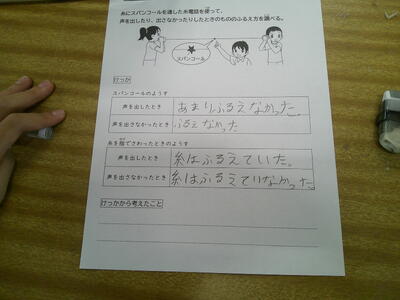 糸にスパンコールを通した糸電話を使って、
声を出したり、出さなかったりしたときのもののふるえ方を調べる。
スパンコール
けっか
スパンコールのようす
声を出したとき あまりふるえなかった。
声を出さなかったとき ふるえなかった
糸を指でさわったときのようす
声を出したとき 糸はふるえていた。
声を出さなかったとき 糸はふるえていなかった。
けっかから考えたこと